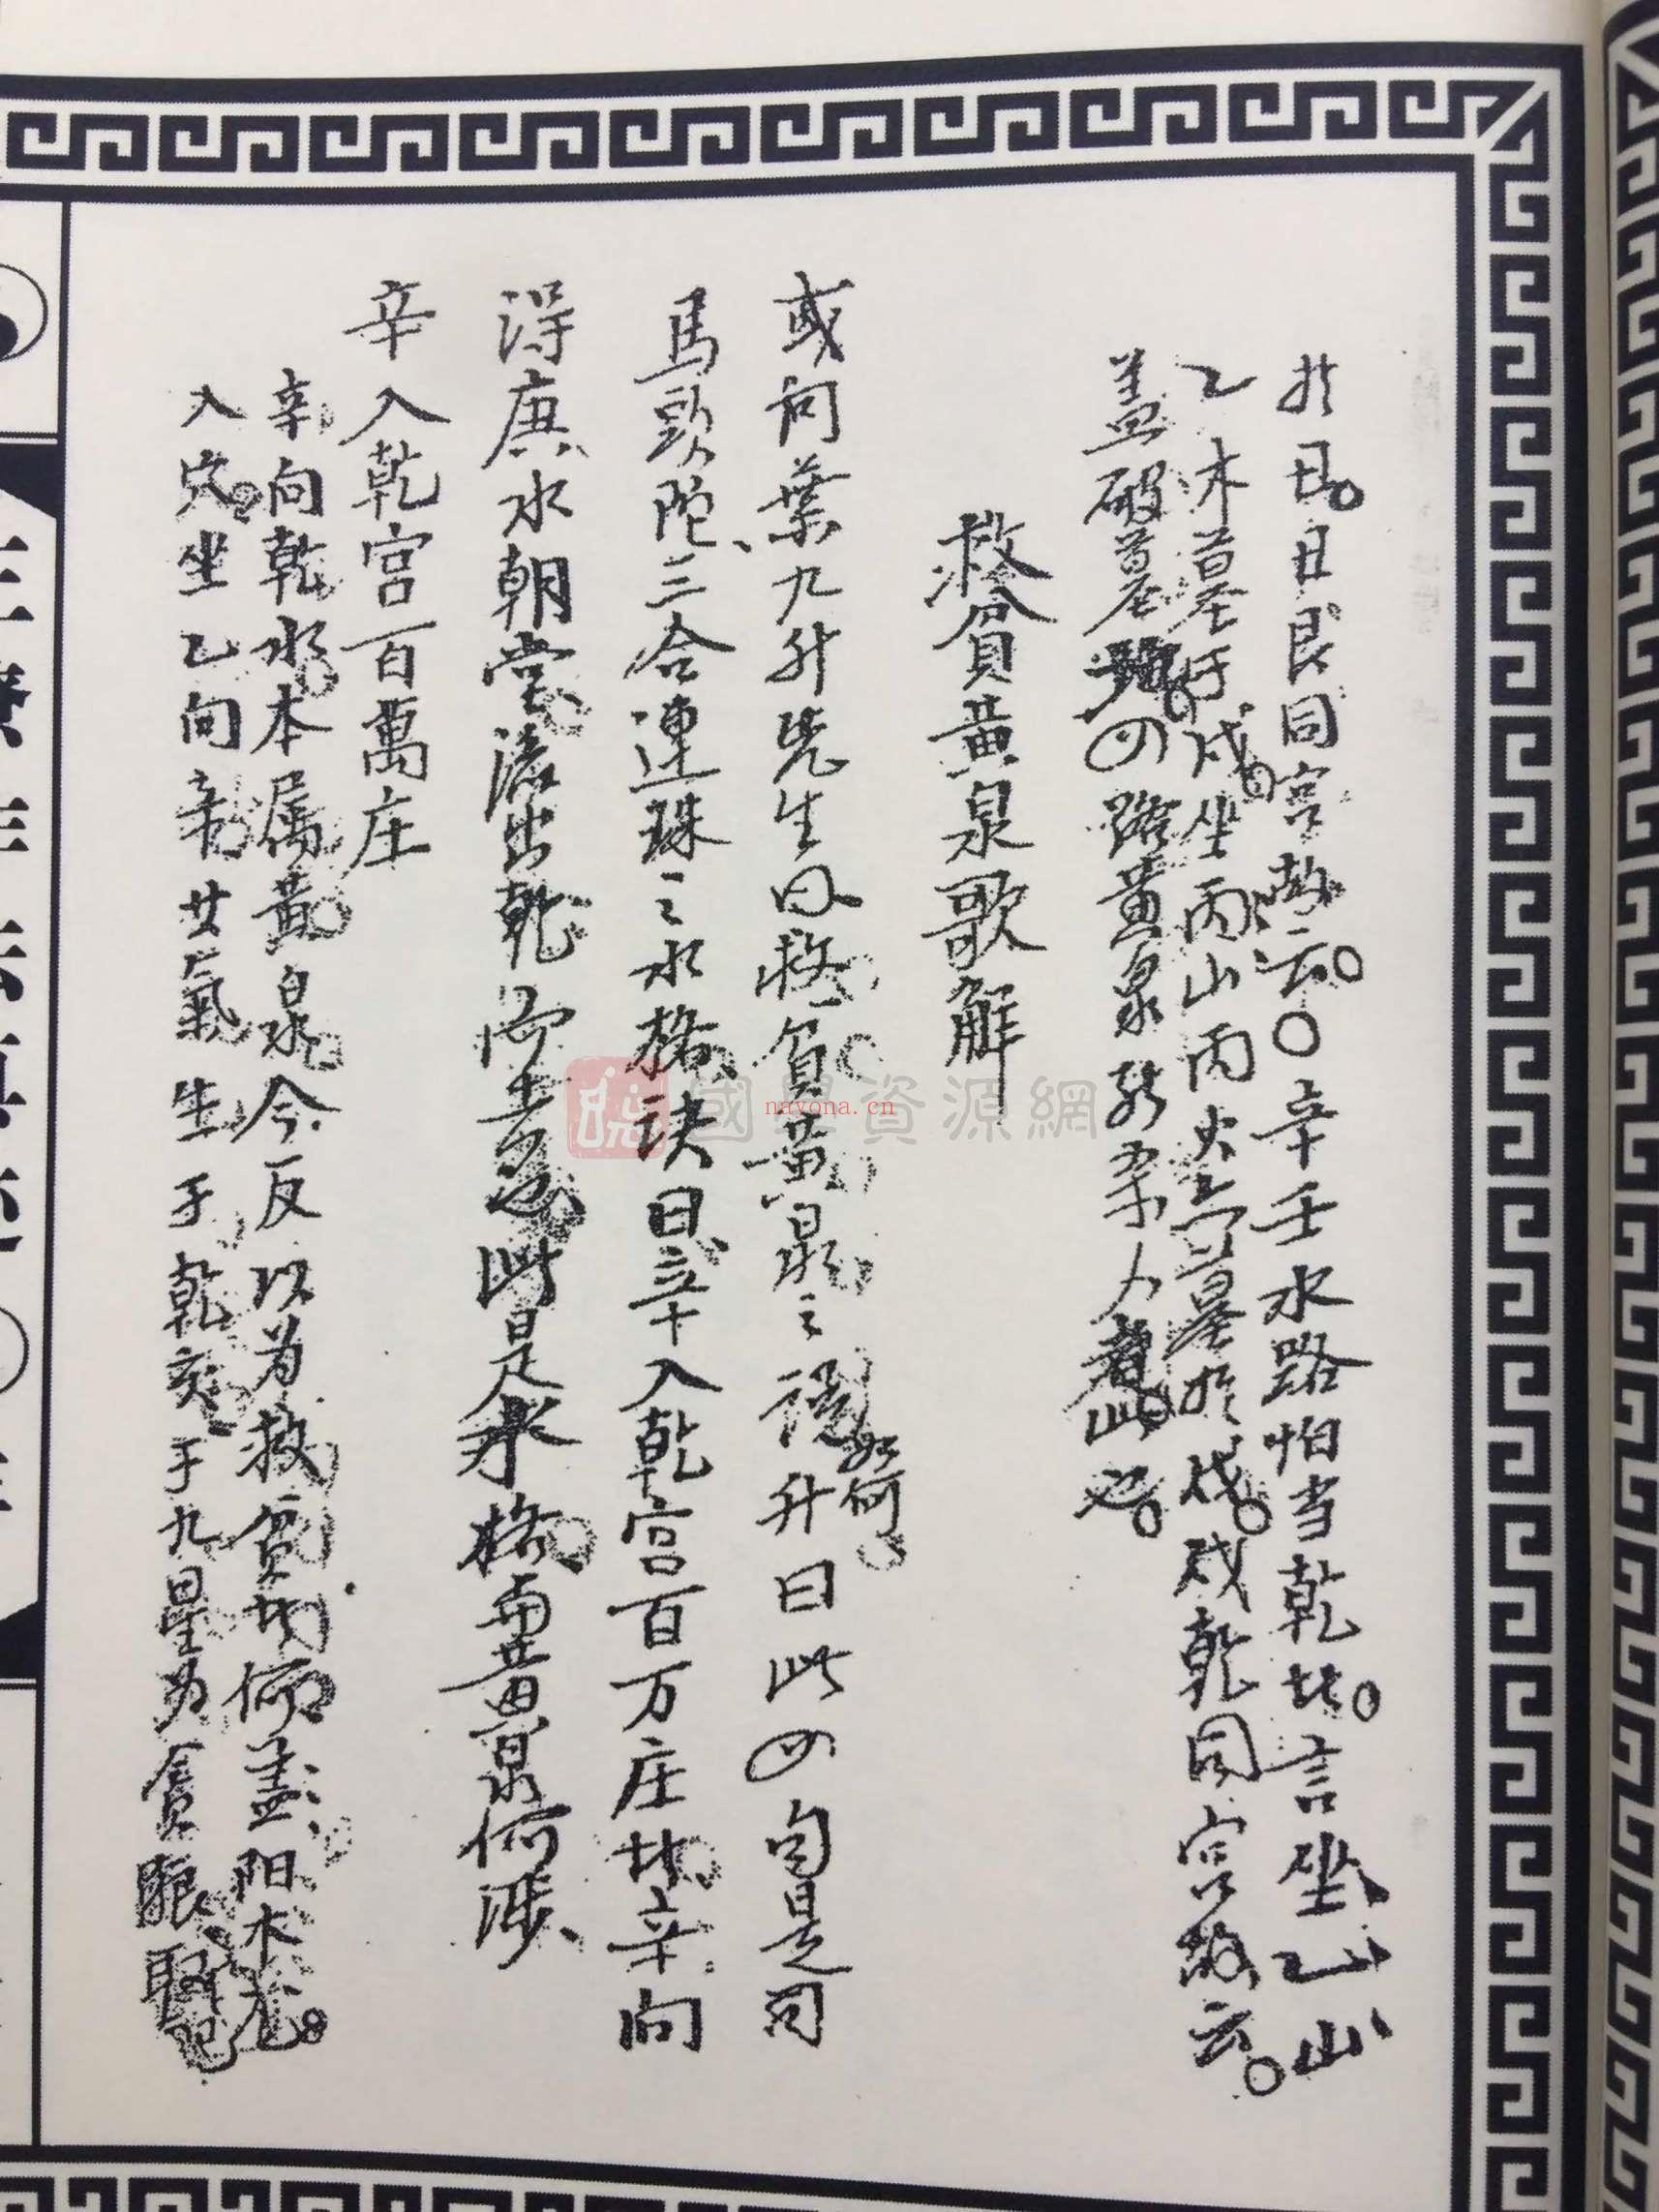 於丑。丑艮同宫故云。〇辛壬水路怕当乾者。言坐乙山
乙木墓于戌。坐丙山丙火亦墓於戌。戌乾同宫故云。
盖破墓。四路黄泉能杀人者此也。
救貧黄泉歌解
或问葉九升先生曰救貧黄泉之说如何。升曰此四句是司
馬頭陀三合連珠之水格诀曰辛入乾宫百万庄者。辛向
得庚水朝堂。流出乾而去。此是水格而黄泉何涉
辛入乾宫百萬庄
辛向乾水本属黄泉今反以为救貧者何盖阳木
入穴坐乙向辛女氣生于乾亥于九星为貪狼
國學資源網
nayona.cn